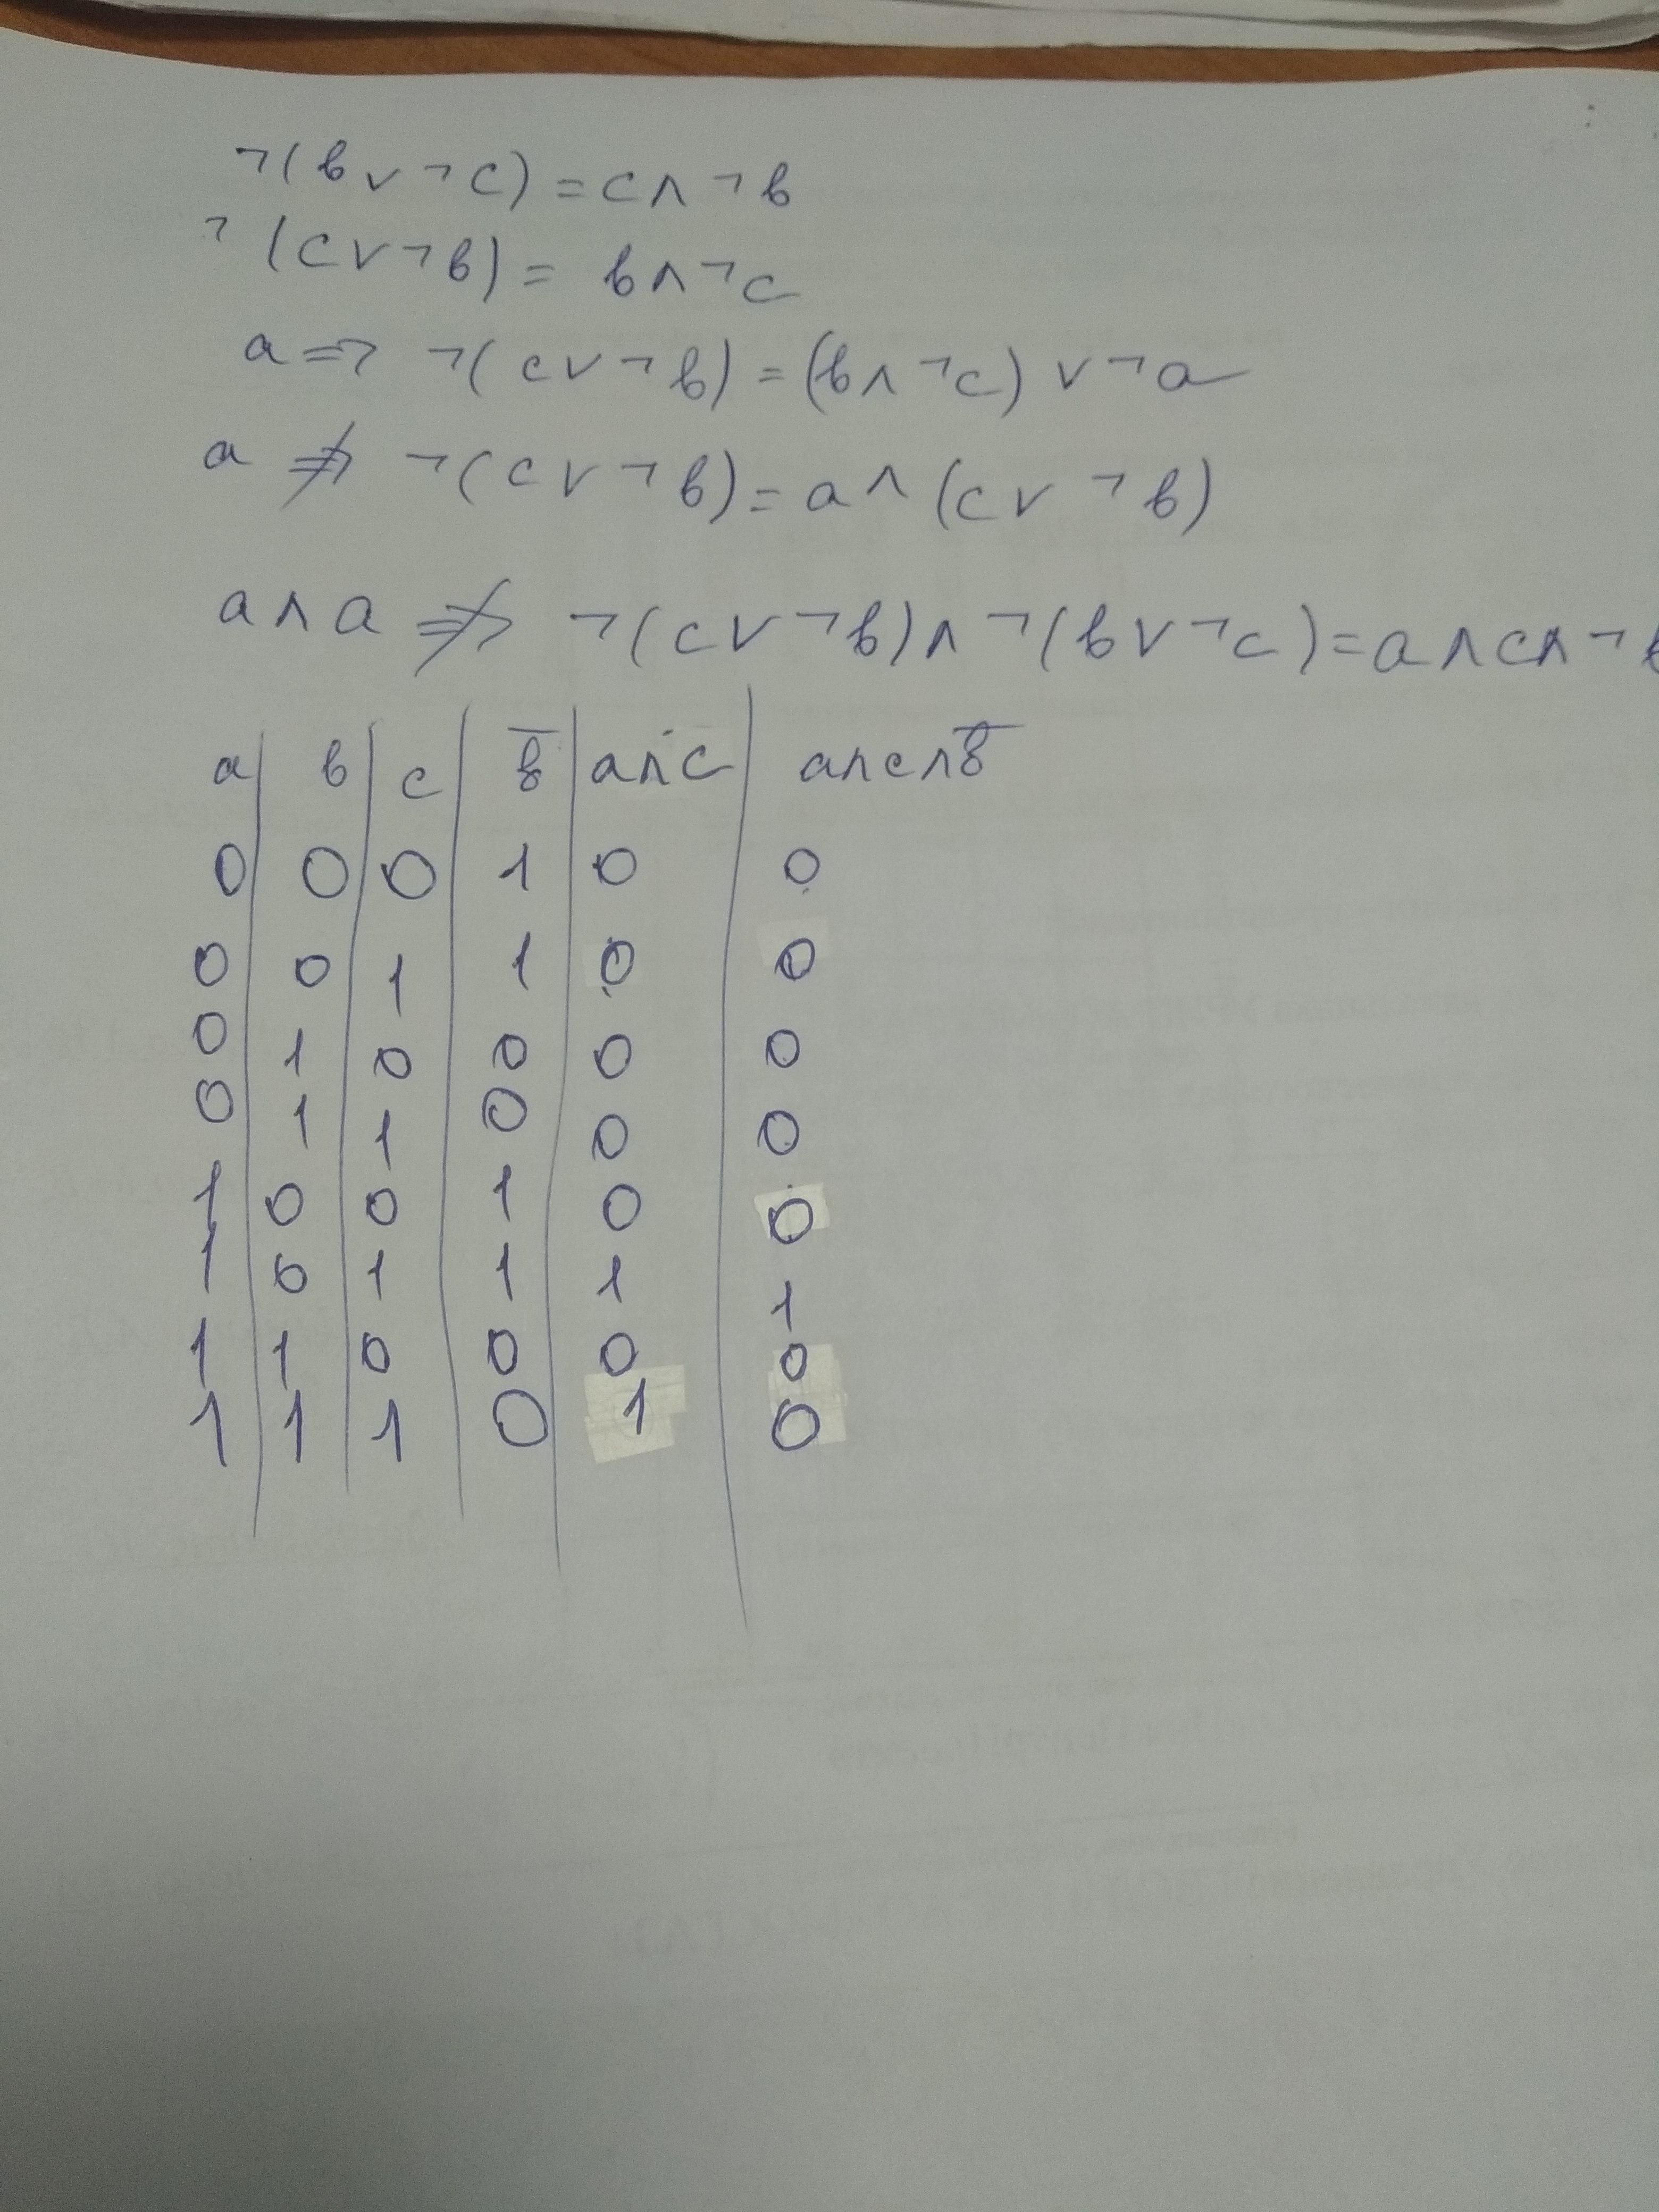 ¬(b∨¬c)=c∧¬b
¬(c∨¬b)=b∧¬c
a⇒¬(c∨¬b)=(b∧¬c)∨¬a
a⇏¬(c∨¬b)=a∧(c∨¬b)
a∧a⇏¬(c∨¬b)∧¬(b∨¬c)=a∧c∧¬b
a b c b̅ a∧c a∧c∧b̅
0 0 0 1 0 0
0 0 1 1 0 0
0 1 0 0 0 0
0 1 1 0 0 0
1 0 0 1 0 0
1 0 1 1 1 1
1 1 0 0 0 0
1 1 1 0 1 0